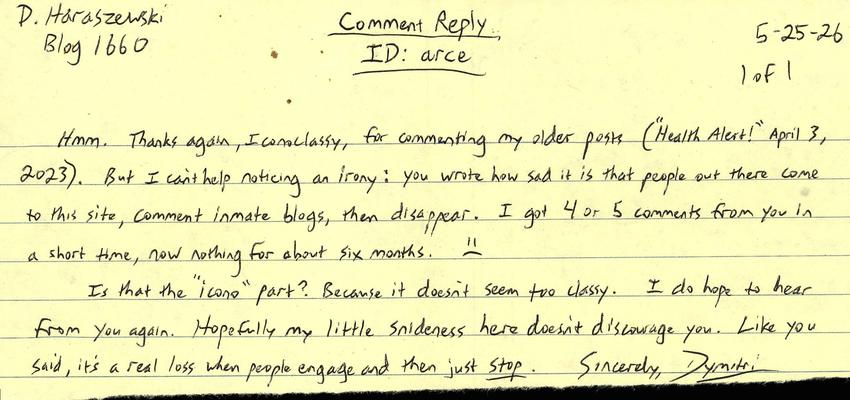 D. Haraszewski
Blog 1660
Comment Reply
ID: arce
5-25-26
1 of 1
Hmm. Thanks again, Iconoclassy, for commenting my older posts ("Health Alert!" April 3,
2023). But I can't help noticing an irony: you wrote how sad it is that people out there come
to this site, comment inmate blogs, then disappear. I got 4 or 5 comments from you in
a short time, now nothing for about six months. ":(
Is that the "icono" part? Because it doesn't seem too classy. I do hope to hear
from you again. Hopefully my little snideness here doesn't discourage you. Like you
said, it's a real loss when people engage and then just stop. Sincerely, Dymitri